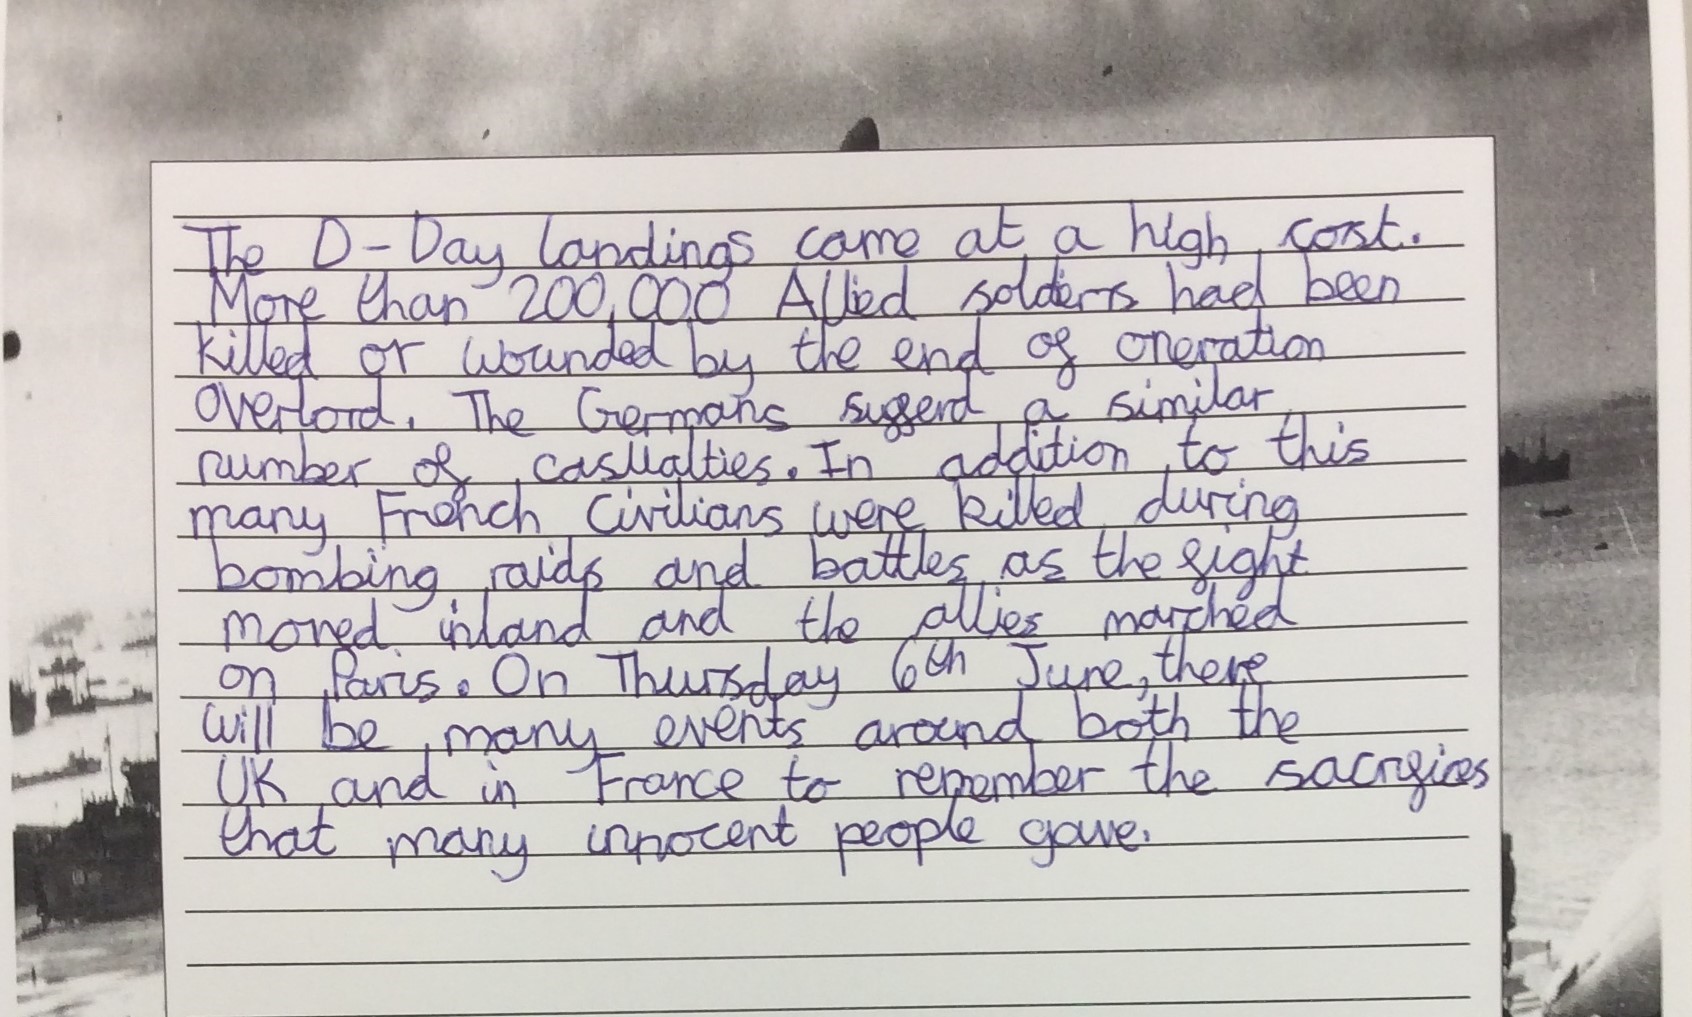 The D-Day landings came at a high cost.
More than 200,000 Allied solders had been
killed or wounded by the end of operation
overlord. The Germans sufferd a similar
number of casualties. In addition to this
many French Civilians were killed during
bombing raids and battles as the fight
moved inland and the allies marched
on Paris. On Thursday 6th June, there
will be many events around both the
UK and in France to remember the sacrifices
that many innocent people gave.